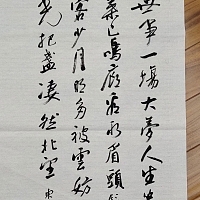 世事一場大夢人生
葉已鳴廊看取眉頭
客少月明多被雲妨
光把盞凄然北望